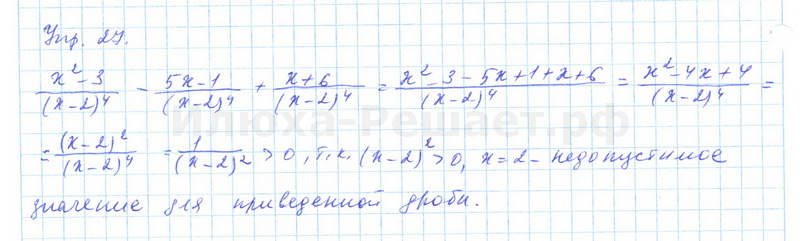 Упр. 27.
(x²-3)/(x-2)⁴ - (5x-1)/(x-2)⁴ + (x+6)/(x-2)⁴ = (x²-3-5x+1+x+6)/(x-2)⁴ = (x²-4x+4)/(x-2)⁴ =
= (x-2)²/(x-2)⁴ = 1/(x-2)² > 0, т.к. (x-2)² > 0, x=2 - недопустимое
значение для приведенной дроби.
Илюха-Решает.рф